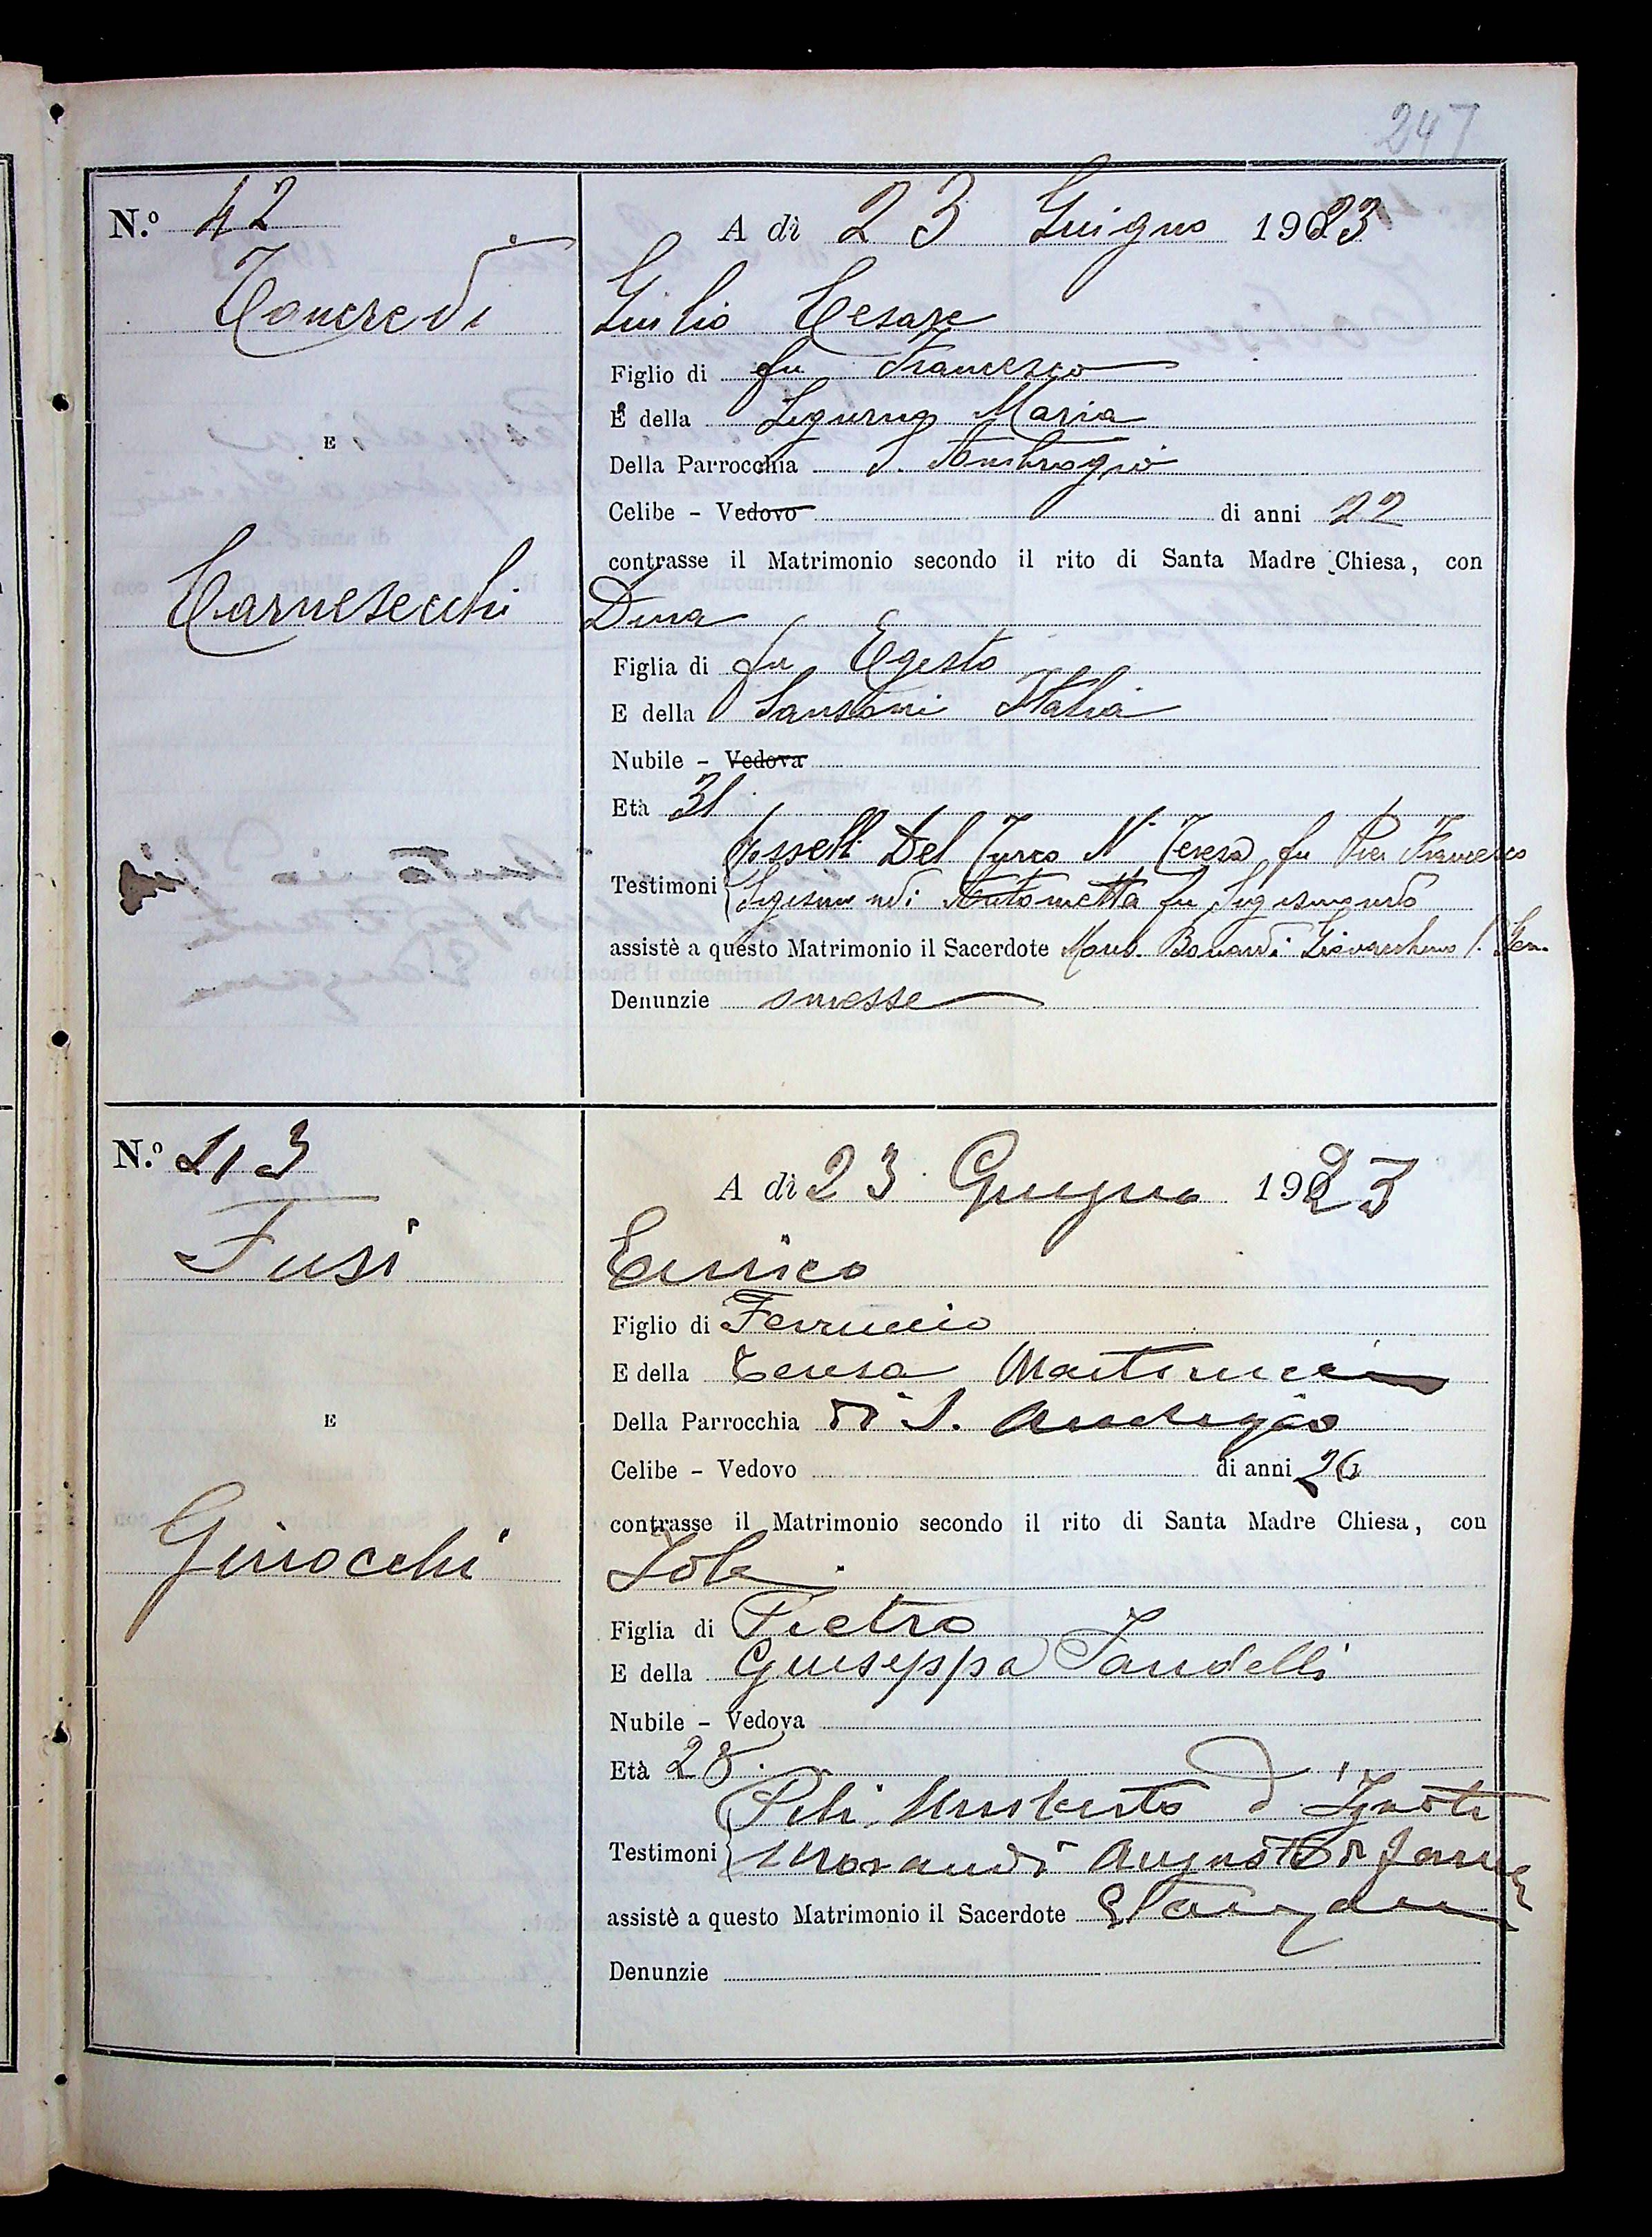 247
N.º 42
A dì 23 Giugno 1923
Tancredi
Giulio Cesare
Figlio di fu Francesco
E della Maria
E
Della Parrocchia S. Ambrogio
Celibe - Vedovo di anni 22
contrasse il Matrimonio secondo il rito di Santa Madre Chiesa, con
Carnesecchi
Dina
Figlia di fu Egisto
E della Sansoni Italia
Nubile - Vedova
Età 31
Rosselli Del Turco N. Teresa fu Pier Francesco
Testimoni
Sigismondi Antonietta fu Sigismondo
assistè a questo Matrimonio il Sacerdote Mons. Bonardi Giovacchino
Denunzie omesse
N.º 43
A dì 23 Giugno 1923
Fusi
Enrico
Figlio di Ferruccio
E della Teresa Martinucci
E
Della Parrocchia di S. Ambrogio
Celibe - Vedovo di anni 26
contrasse il Matrimonio secondo il rito di Santa Madre Chiesa, con
Ginocchi
Iole
Figlia di Pietro
E della Giuseppa Fandelli
Nubile - Vedova
Età 28
Umberto d'Ignoti
Testimoni
Morandi Augusto di
assistè a questo Matrimonio il Sacerdote
Denunzie